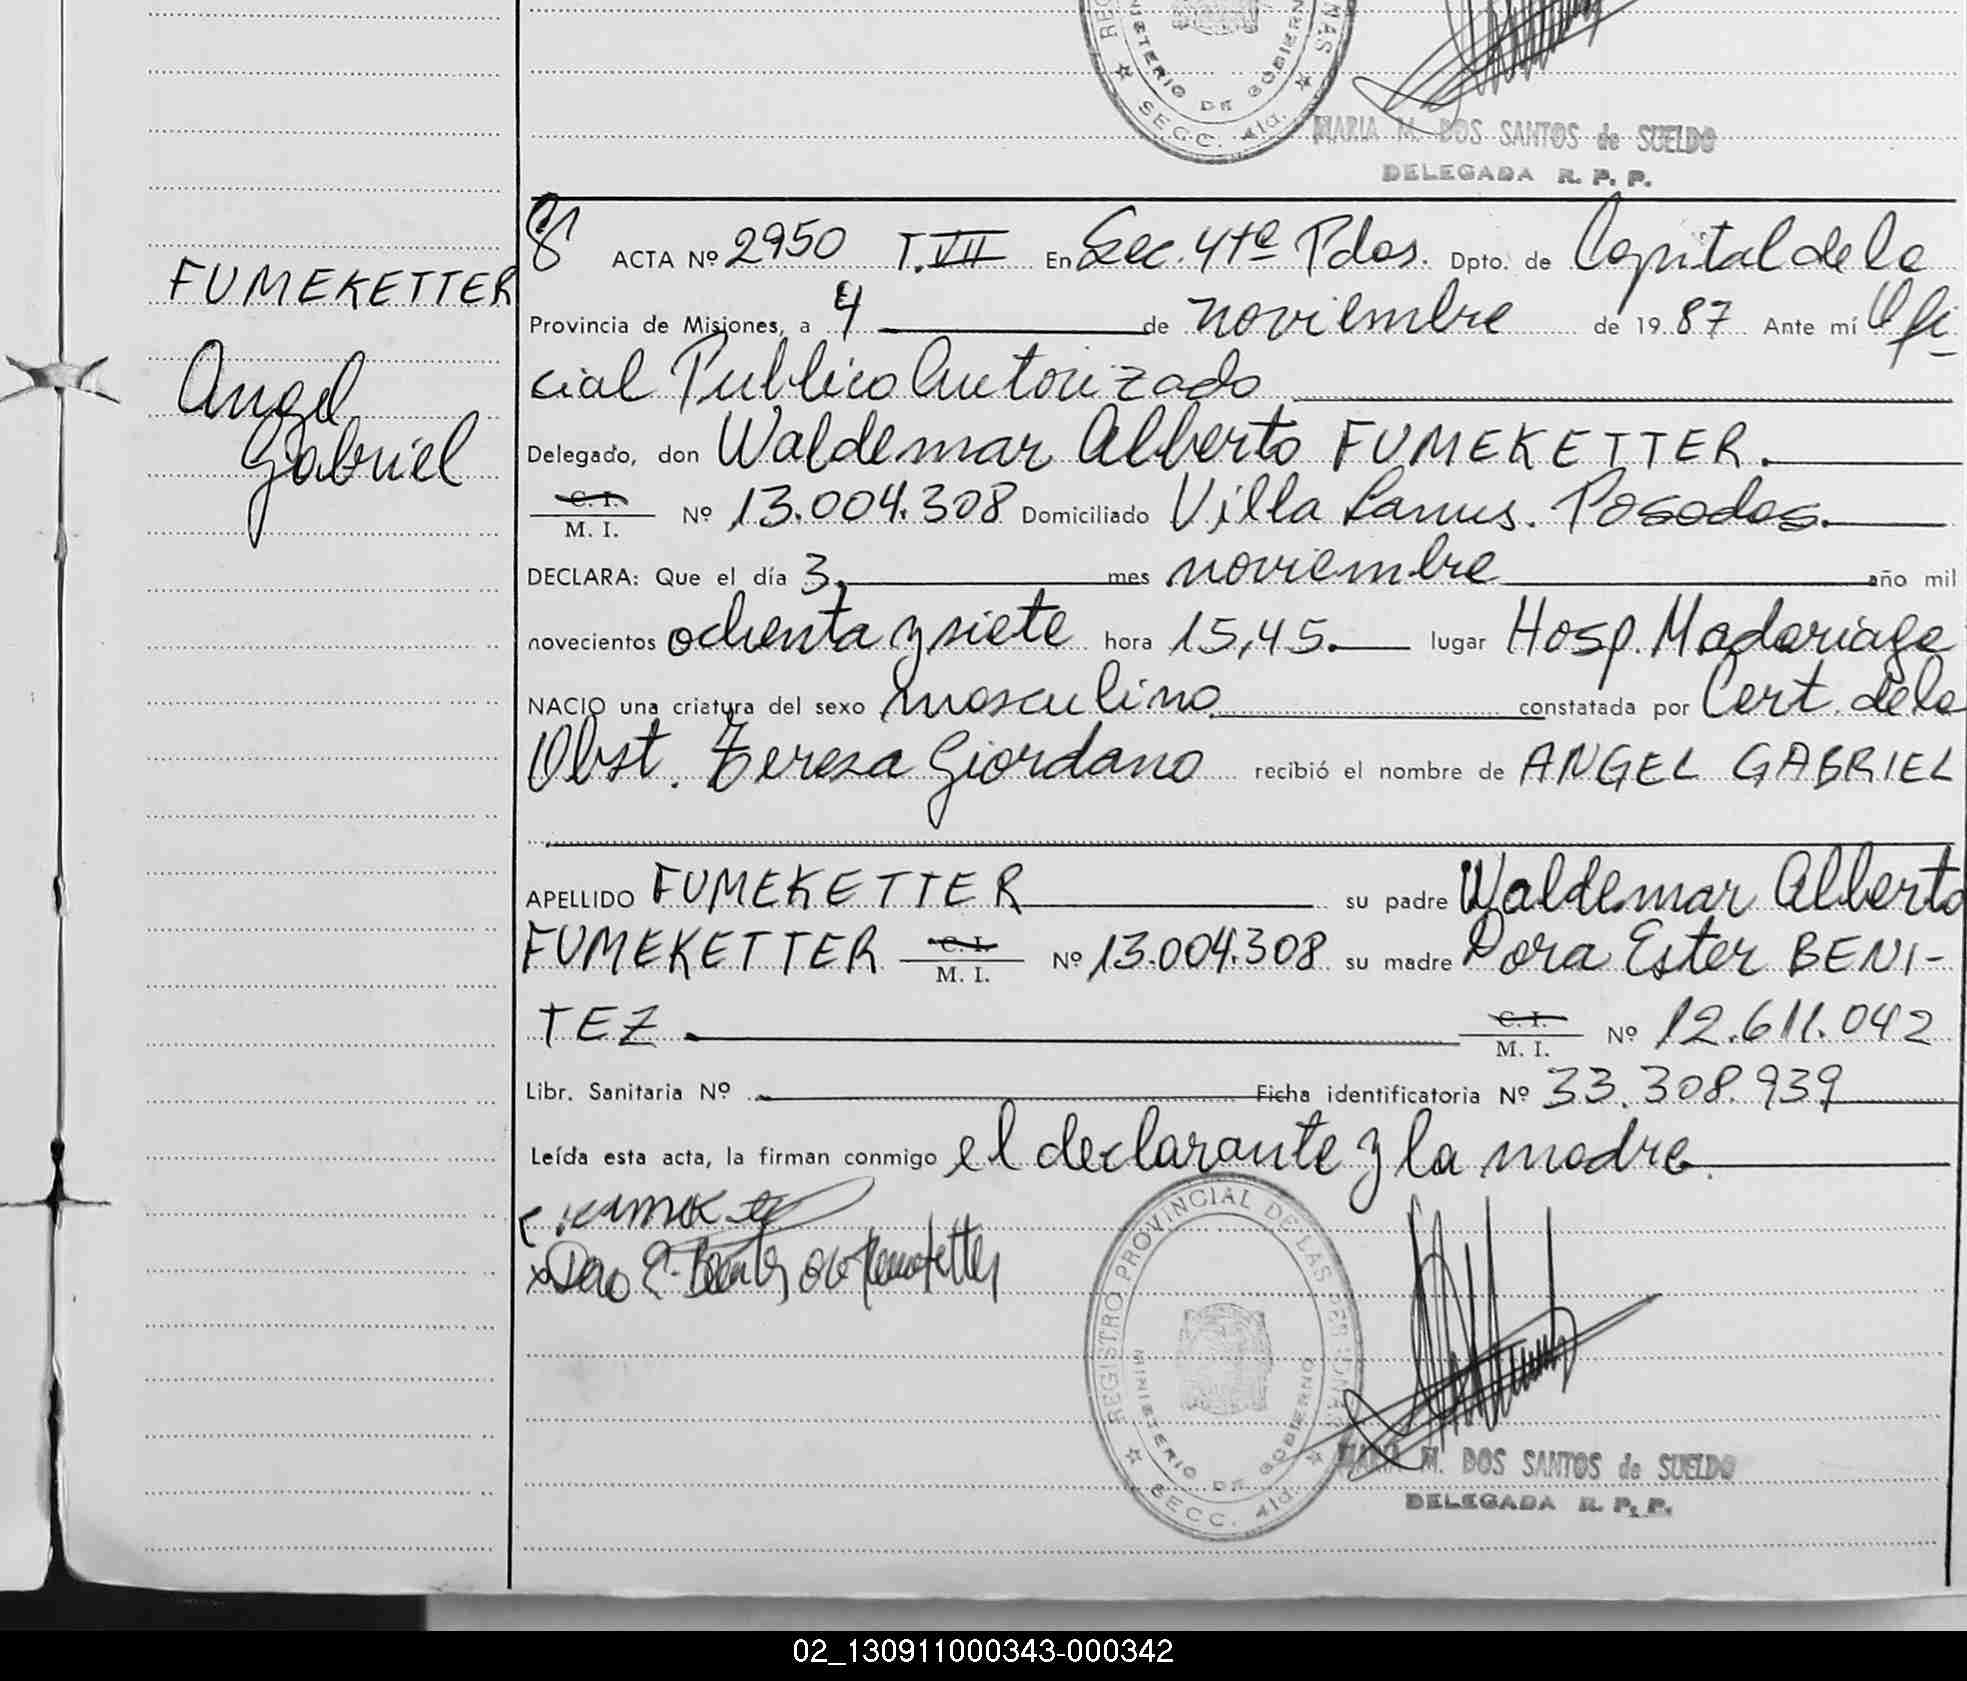 MARIA M. DOS SANTOS de SUELDO
DELEGADA R. P. P.
MINISTERIO DE GOBIERNO
SECC. 4ta.
FUMEKETTER
Angel
Gabriel
8 ACTA Nº 2950 T. VII En Sec. 4ta Pdas. Dpto. de Capital de la
Provincia de Misiones, a 4 de noviembre de 1987 Ante mí Ofi-
cial Publico Autorizado
Delegado, don Waldemar Alberto FUMEKETTER.
C. I.
M. I. Nº 13.004.308 Domiciliado Villa Lanus. Posadas.
DECLARA: Que el día 3, mes noviembre año mil
novecientos ochenta y siete hora 15,45. lugar Hosp. Madariaga
NACIO una criatura del sexo masculino constatada por Cert. de la
Obst. Teresa Giordano recibió el nombre de ANGEL GABRIEL
APELLIDO FUMEKETTER su padre Waldemar Alberto
FUMEKETTER C. I. M. I. Nº 13.004.308 su madre Dora Ester BENI-
TEZ. C. I. M. I. Nº 12.611.042
Libr. Sanitaria Nº Ficha identificatoria Nº 33.308.939
Leída esta acta, la firman conmigo el declarante y la madre.
REGISTRO PROVINCIAL DE LAS PERSONAS
MINISTERIO DE GOBIERNO
SECC. 4ta.
MARIA M. DOS SANTOS de SUELDO
DELEGADA R. P. P.
02_130911000343-000342